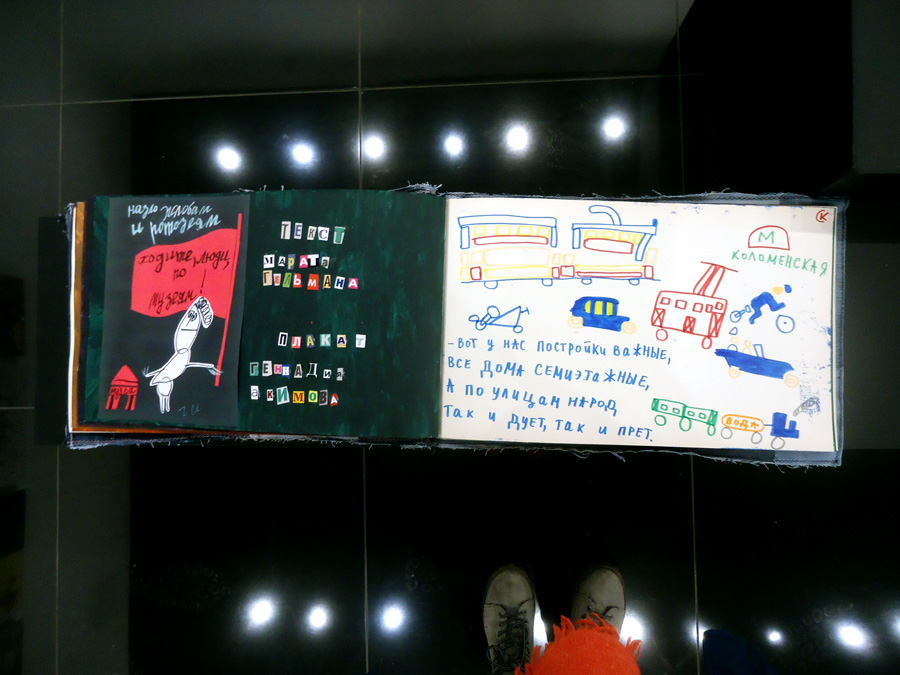 назло жлобам
и ротозеям
ходите, люди,
по
музеям!
музей
ТЕКСТ
МАРАТА
ГЕЛЬМАНА
ПЛАКАТ
ГЕННАДИЯ
аКИМОВА
К
М
КОЛОМЕНСКАЯ
- ВОТ У НАС ПОСТРОЙКИ ВАЖНЫЕ,
ВСЕ ДОМА СЕМИЭТАЖНЫЕ,
А ПО УЛИЦАМ НАРОД
ТАК И ДУЕТ, ТАК И ПРЕТ.
ВОДА